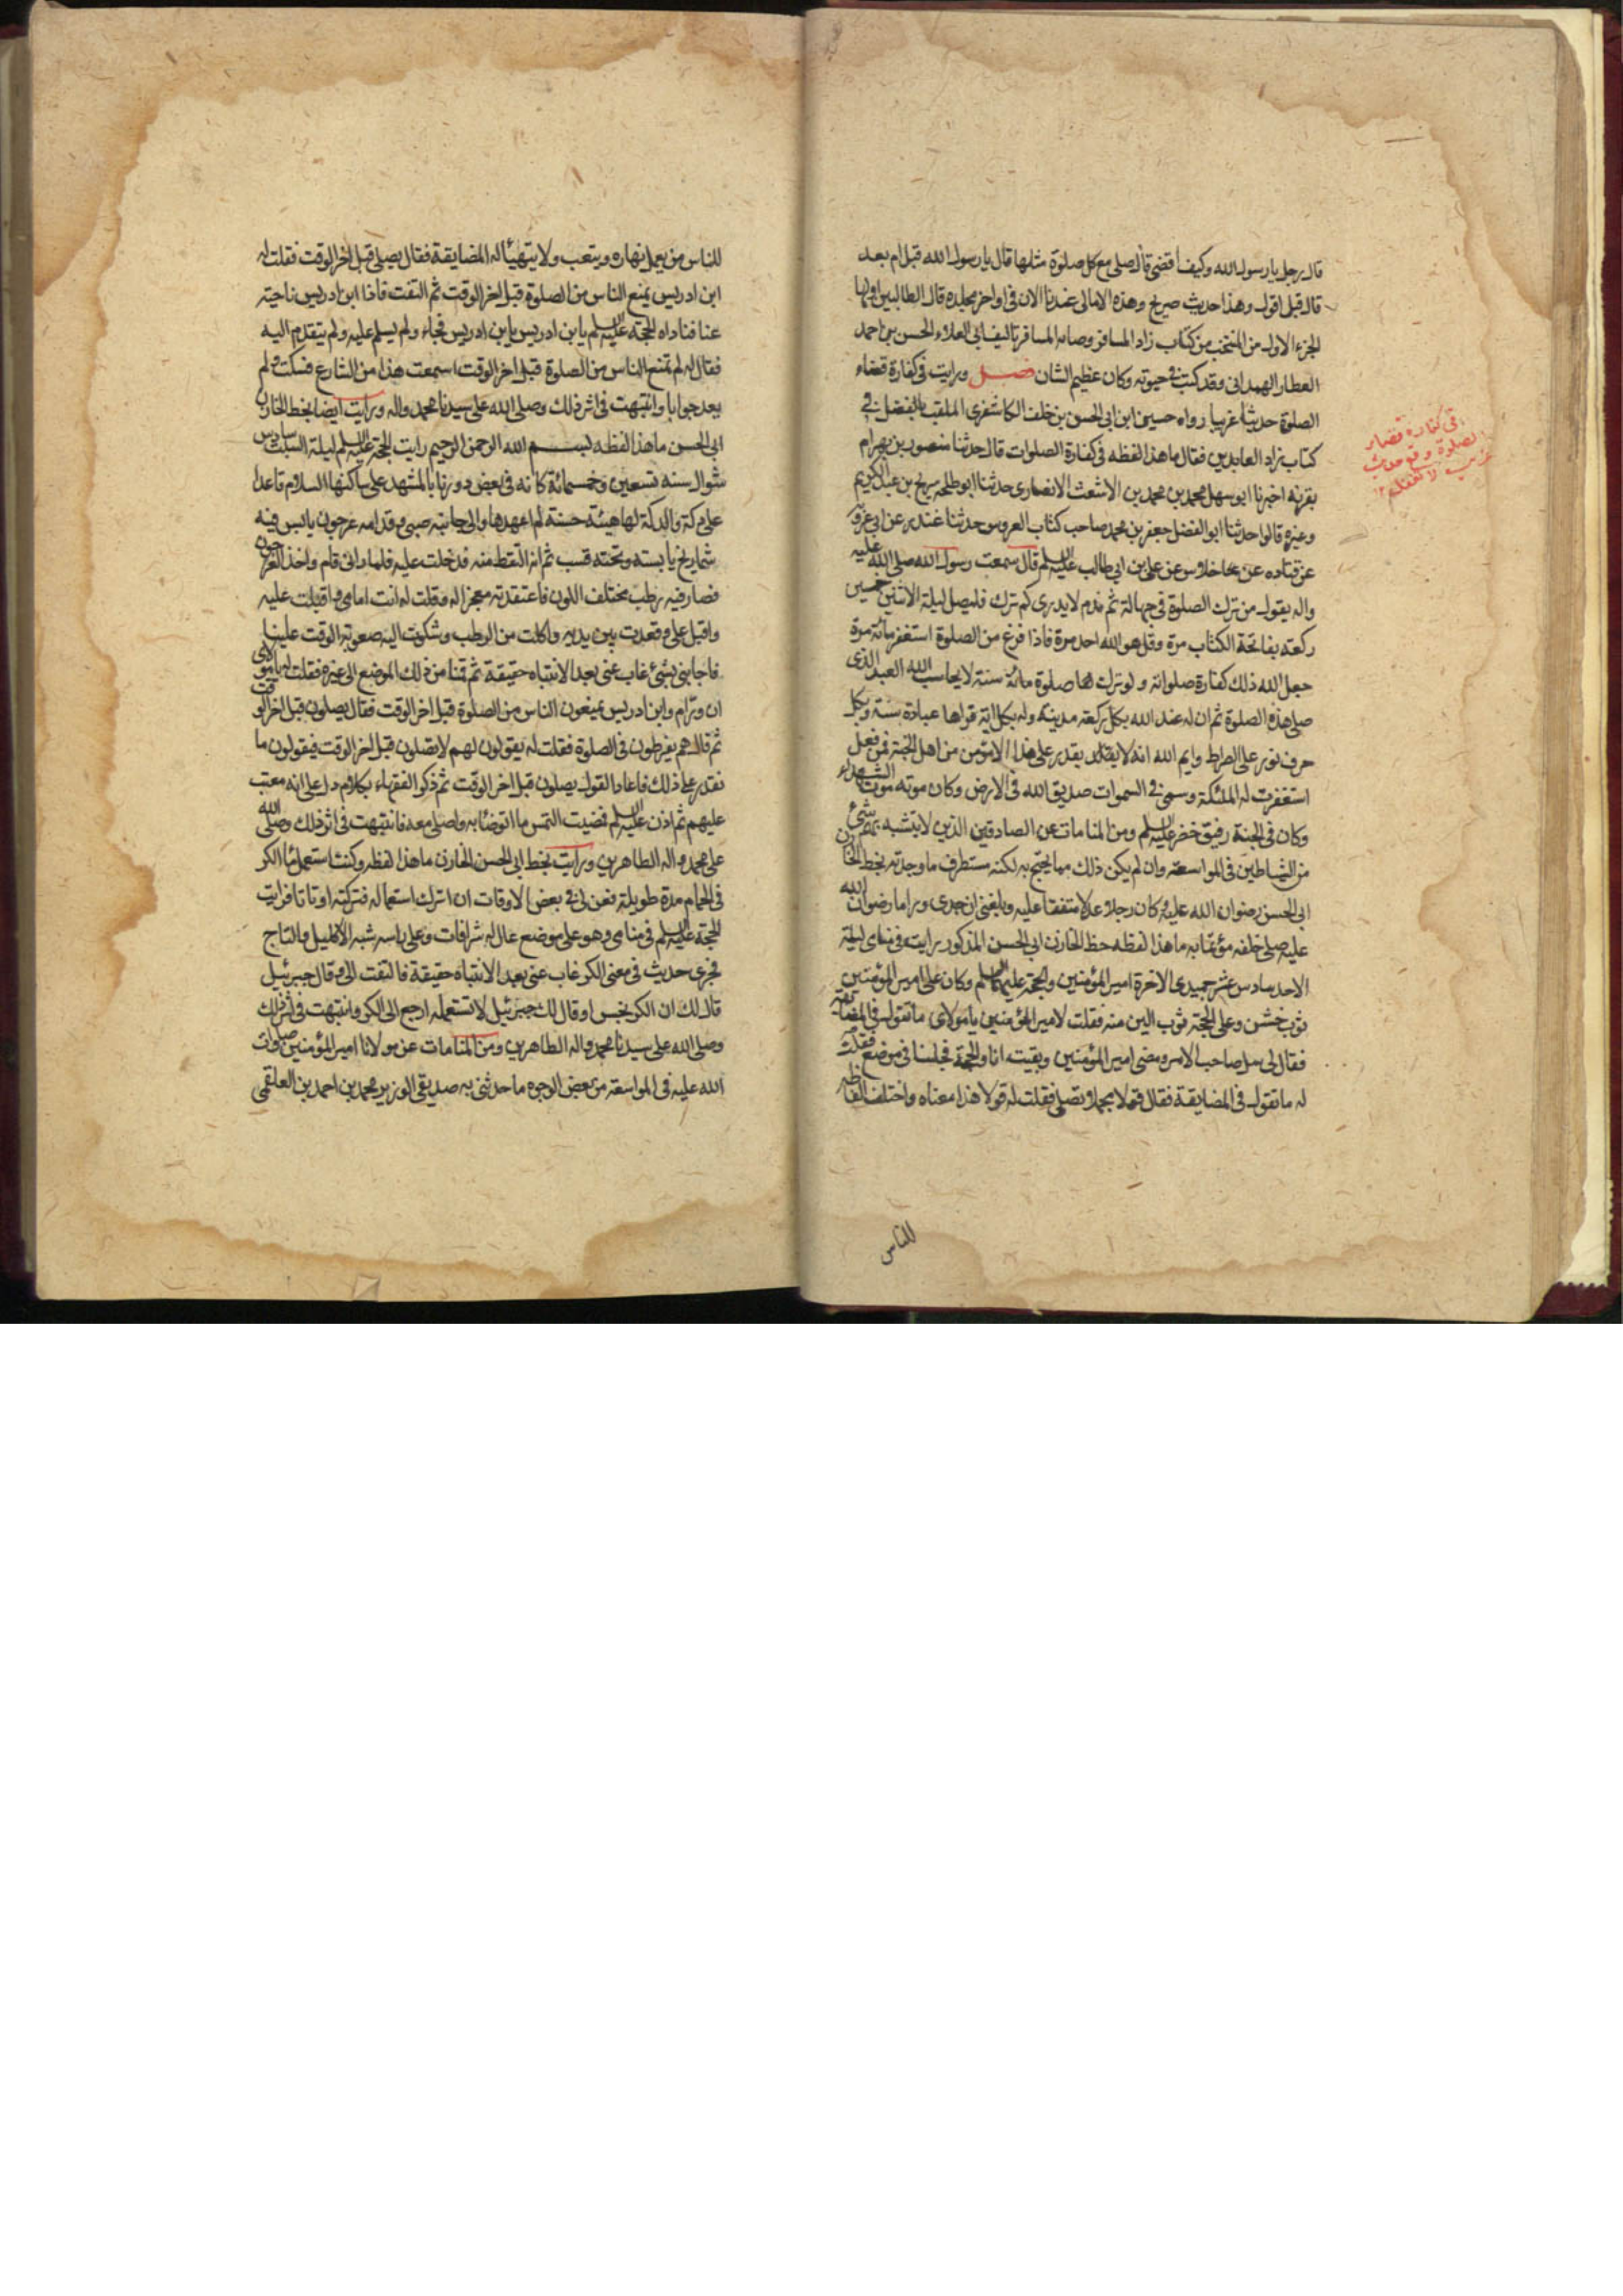 قال رجل يا رسول الله وكيف اقضى قال صلى مع كل صلوة مثلها قال يا رسول الله قبل ام بعد
قال قبل اقول وهذا حديث صريح وهذه الامالى عندنا الان فى اواخر مجلده قال الطالبيين اولها
الجزء الاول من المنتخب من كتاب زاد المسافر وصاه المسافر تاليف ابى العلاء الحسن بن احمد
العطار الهمدانى وقد كتب فى حيوته وكان عظيم الشان فصل ورايت فى كفارة قضاء
الصلوة حديثا غريبا رواه حسين ابن ابى الحسن بن خلف الكاشغرى الملقب بالفضل فى
كتاب زاد العابدين فقال ما هذا لفظه فى كفارة الصلوات قال حدثنا منصور بن بهرام
بقرنه اخبرنا ابو سهل محمد بن محمد بن الاشعث الانصارى حدثنا ابو طلحه سريج بن عبد الكريم
وغيره قالوا حدثنا ابو الفضل جعفر بن محمد صاحب كتاب العروس حدثنا غندر عن ابى عروة
عن قتاده عن خلاس عن على بن ابى طالب عليه السلم قال سمعت رسول الله صلى الله عليه
واله يقول من ترك الصلوة فى جهالته ثم ندم لا يدرى كم ترك فليصل ليلة الاثنين خمسين
ركعة بفاتحة الكتاب مرة وقل هو الله احد مرة فاذا فرغ من الصلوة استغفر مائة مرة
جعل الله ذلك كفارة صلواته ولو ترك صلوة مائة سنة لا يحاسب الله العبد الذى
صلى هذه الصلوة ثم ان له عند الله بكل ركعة مدينة وله بكل اية قراها عبادة سنة وبكل
حرف نور على الصراط وايم الله انه لا يقدر على هذا الا مؤمن من اهل الجنة فمن فعل
استغفرت له الملئكة وسمى فى السموات صديق الله فى الارض وكان موته موت الشهداء
وكان فى الجنة رفيق خضر عليه السلم ومن المنامات عن الصادقين الذين لا يتشبه بهم شئ
من الشياطين فى المواسعة وان لم يكن ذلك مما يحتج به لكنه مستطرف ما وجدته بخط الخازن
ابى الحسن رضوان الله عليه وكان رجلا عدلا متفقا عليه وبلغنى ان جدى وراما رضوان الله
عليه صلى خلفه مؤتما به ما هذا لفظه خط الخازن ابى الحسن المذكور رايت فى منامى ليلة
الاحد سادس عشر جميدى الاخرة امير المؤمنين والحجة عليهما السلم وكان على امير المؤمنين
ثوب خشن وعلى الحجة ثوب الين منه فقلت لامير المؤمنين يا مولاى ما تقول فى المضايقة
فقال لى سل صاحب الامر ومضى امير المؤمنين وبقيت انا والحجة فجلسنا فى موضع فقلت
له ما تقول فى المضايقة فقال قولا مجملا تصلى فقلت له قولا هذا معناه واختلف الفاظه
للناس
فى كفارة قضاء
الصلوة وقع حديث
غريب لا تغفلم
للناس من يعمل نهاره ويتعب ولا يتهيأ له المضايقة فقال يصلى قبل اخر الوقت فقلت له
ابن ادريس يمنع الناس من الصلوة قبل اخر الوقت ثم التفت فاذا ابن ادريس ناحية
عنا فناداه الحجة عليه السلم يا بن ادريس يا بن ادريس فجاء ولم يسلم عليه ولم يتقدم اليه
فقال له لم تمنع الناس من الصلوة قبل اخر الوقت اسمعت هذا من الشارع فسكت ولم
يعد جوابا وانتبهت فى اثر ذلك وصلى الله على سيدنا محمد واله ورايت ايضا بخط الخازن
ابى الحسن ما هذا لفظه بسم الله الرحمن الرحيم رايت الحجة عليه السلم ليلة السبت سادس
شوال سنة تسعين وخمسمائة كانه فى بعض دورنا بالمشهد على ساكنها السلام قاعدا
على دكة والدكة لها هيئة حسنة لم اعهدها والى جانبه صبى وقدامه عرجون يابس فيه
شماريخ يابسه وتحته قسب ثم انه التقط منه فدخلت عليه فلما رانى قام واخذ العرجون
فصار فيه رطب مختلف اللون فاعتقدته معجزا له وقلت له انت امامى واقبلت عليه
واقبل على وقعدت بين يديه واكلت من الرطب وشكوت اليه صعوبة الوقت علينا
فاجابنى بشئ غاب عنى بعد الانتباه حقيقة ثم قمنا من ذلك الموضع الى غيره فقلت له يا مولاى
ان ورام وابن ادريس يمنعون الناس من الصلوة قبل اخر الوقت فقال يصلون قبل اخر الوقت
ثم قال هم يفرطون فى الصلوة فقلت له يقولون لهم لا تصلون قبل اخر الوقت فيقولون ما
نقدر على ذلك فاعاد القول يصلون قبل اخر الوقت ثم ذكر الفقهاء بكلام دل على انه معتب
عليهم ثم اذن عليه السلم فمضيت التمس ما اتوضئا به واصلى معه فانتبهت فى اثر ذلك وصلى الله
على محمد واله الطاهرين ورايت بخط ابى الحسن الخازن ما هذا لفظه وكنت استعمل ماء الكر
فى الحمام مدة طويلة فعن لى فى بعض الاوقات ان اترك استعماله فتركته اوقاتا فرايت
الحجة عليه السلم فى منامى وهو على موضع عال له شرافات وعلى راسه شبه الاكليل والتاج
فجرى حديث فى معنى الكر غاب عنى بعد الانتباه حقيقة فالتفت الى وقال جبرئيل
قال لك ان الكر نجس او قال لك جبرئيل لا تستعمله ارجع الى الكر وانتبهت فى اثر ذلك
وصلى الله على سيدنا محمد واله الطاهرين ومن المنامات عن مولانا امير المؤمنين صلوات
الله عليه فى المواسعة من بعض الوجوه ما حدثنى به صديقى الوزير محمد بن احمد بن العلقمى